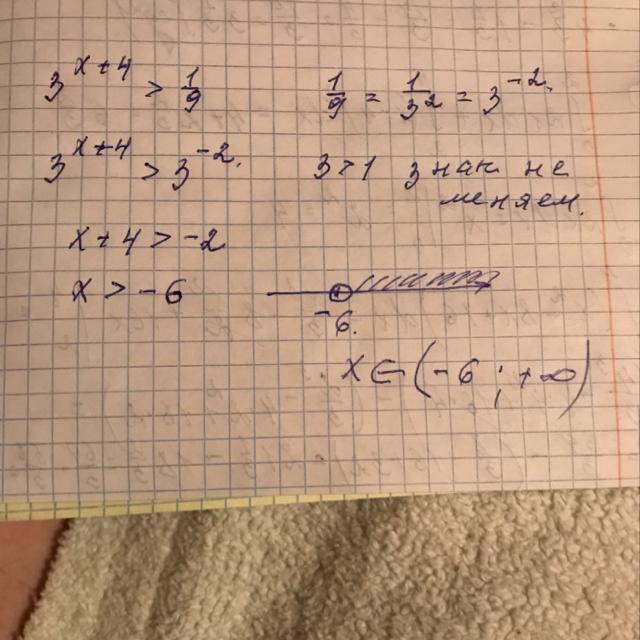 3^{x+4} > 1/9
1/9 = 1/3² = 3^{-2}.
3^{x+4} > 3^{-2}.
3>1 знак не
меняем.
x+4 > -2
x > -6
-6.
x ∈ (-6 ; +∞)